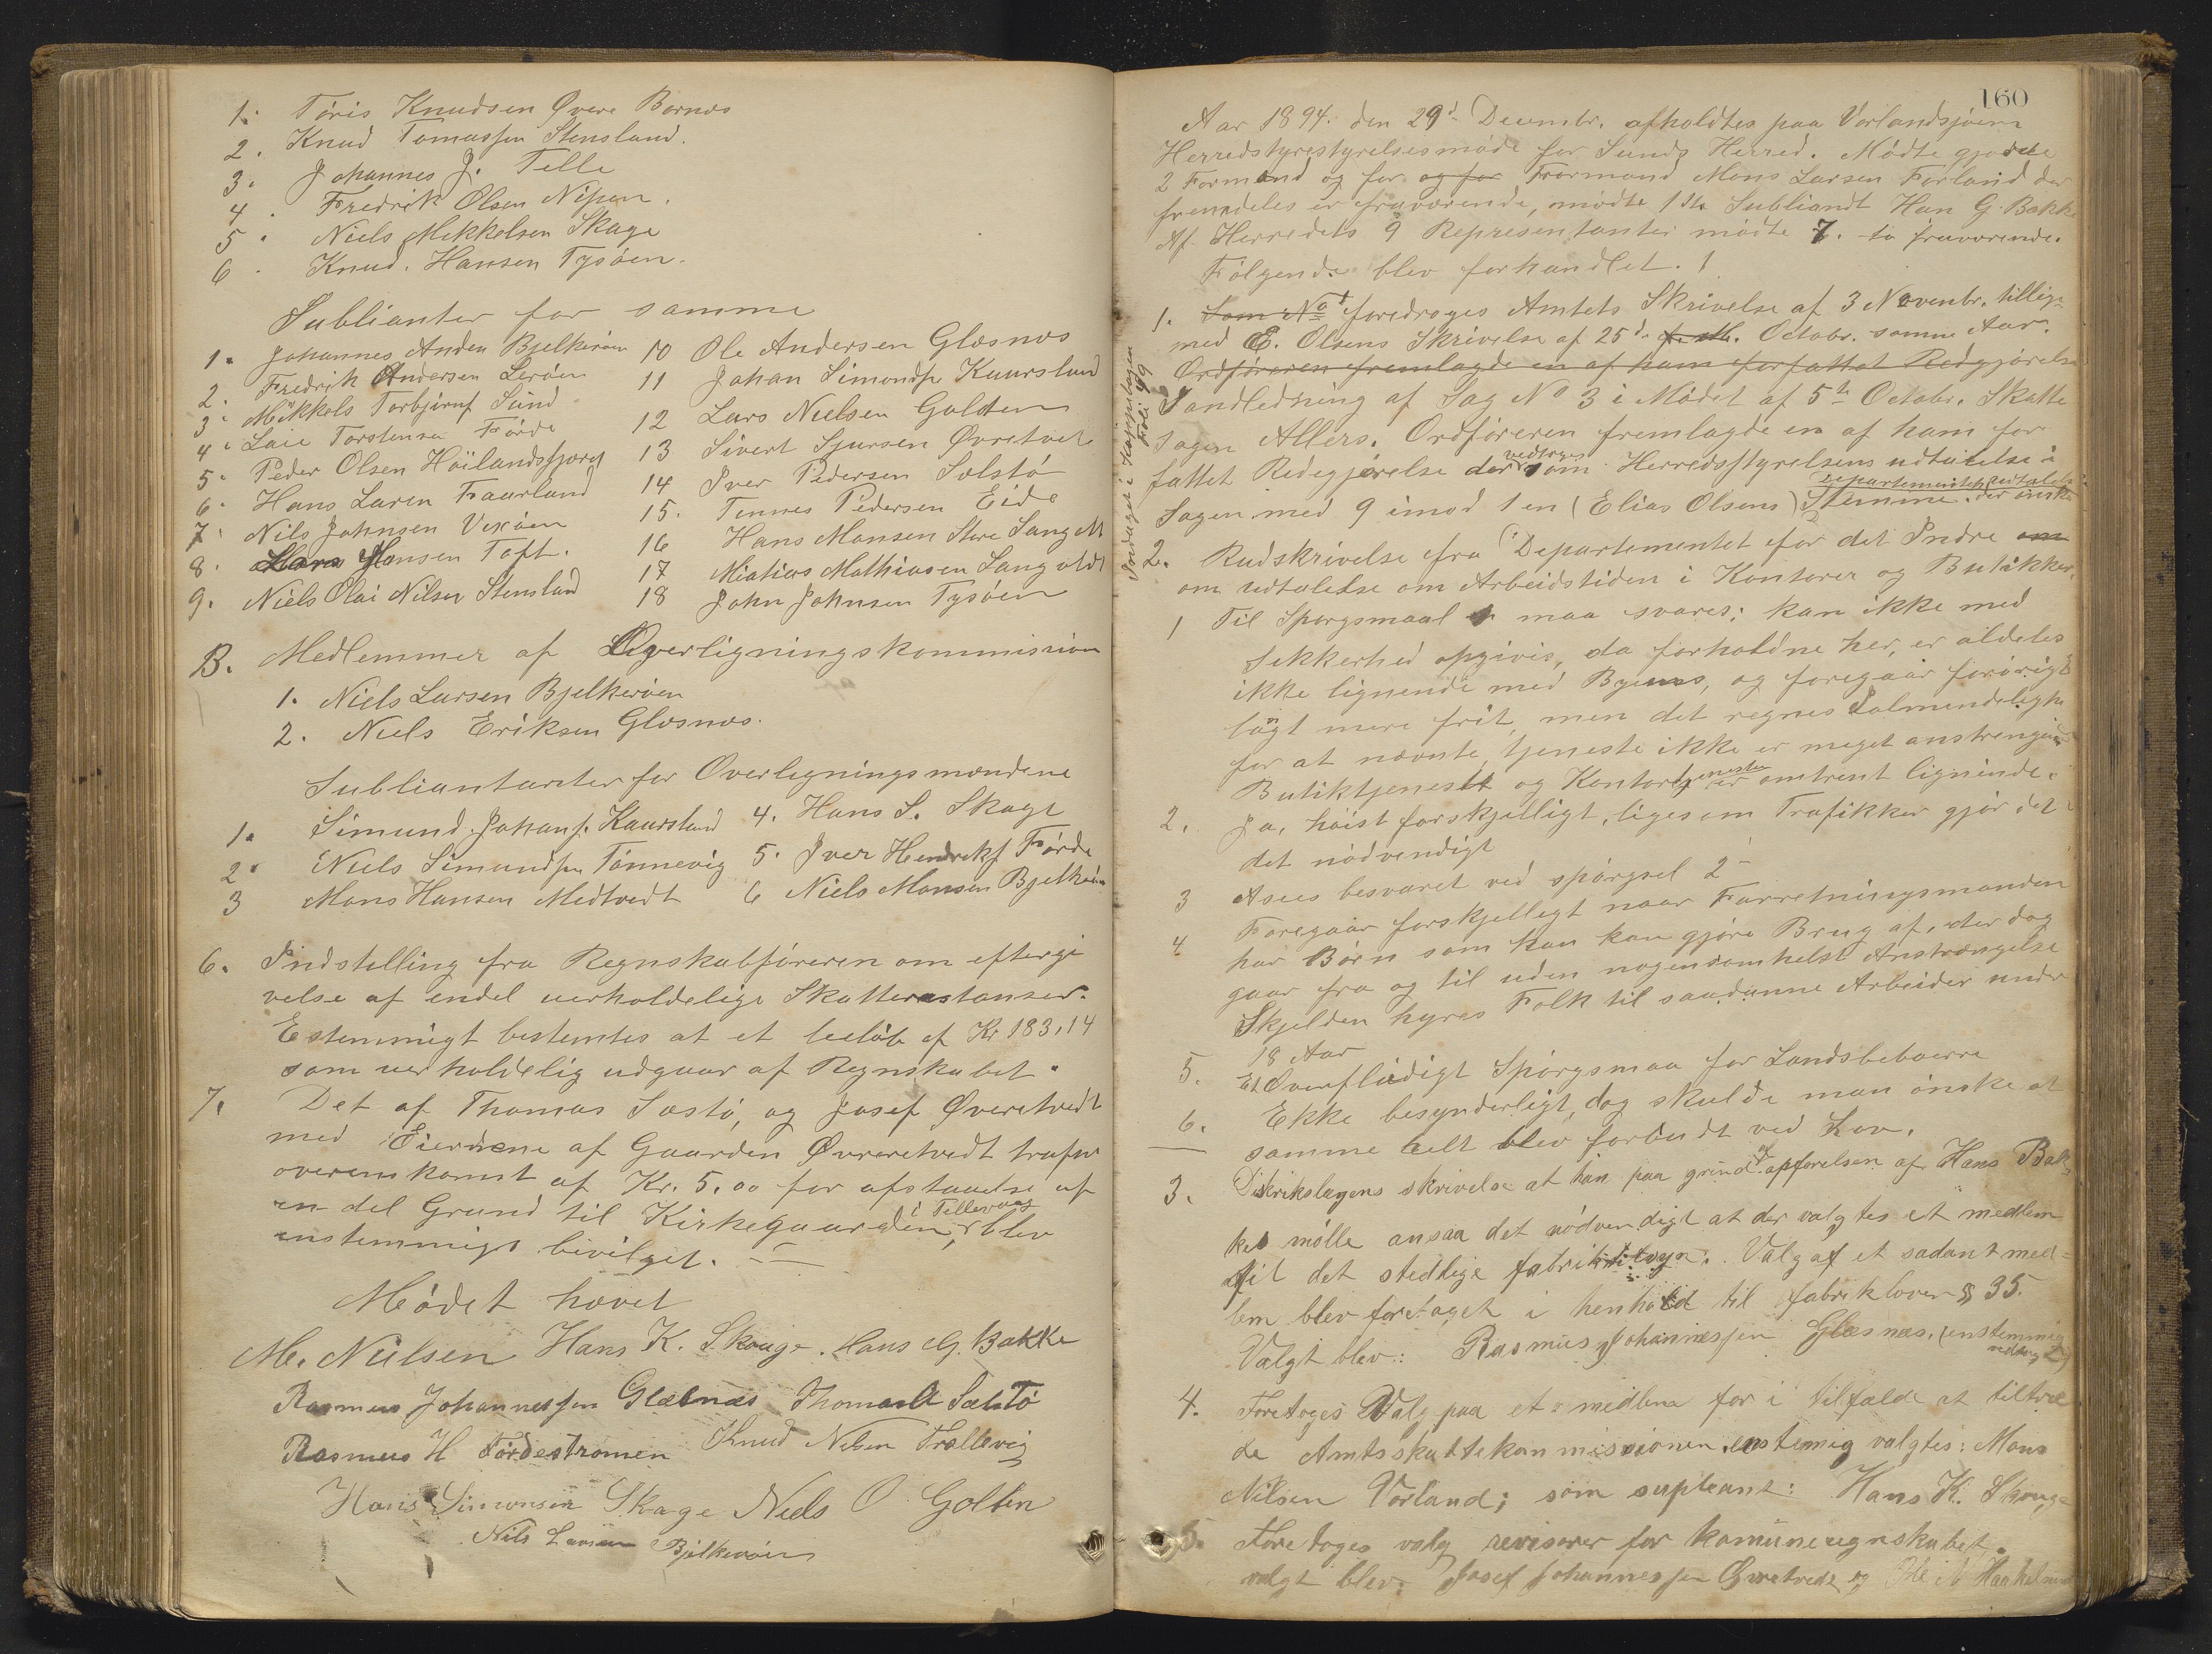 1. Tøris Knudsen Øvere Bornes
2. Knud Tomassen Stensland.
3. Johannes J. Telle
4. Fredrik Olsen Nipen.
5. Niels Mikkelsen Skage
6. Knud. Hansen Tysøen.
Sublianter for samme
1. Johannes Anden Bjelkerøen
2. Fredrik Andersen Lerøen
3. Mikkels Torbjørns Sund
4. Laie Torstensen Førde
5. Peder Olsen Høilandsfjæren
6. Hans Larsen Faurland
7. Nils Johnsen Vixøen
8. Hansen Toft.
9. Niels Olai Nilsen Stensland
10 Ole Andersen Glæsnæs
11 Johan Simonds. Kaursland
12 Lars Nielsen Golten
13 Sivert Sjursen Øvretvet
14 Iver Pedersen Solstø
15. Tennes Pedersen Eide
16 Hans Monsen Store Sangolt
17 Miatias Mathiasen Sangoldt
18 John Johnsen Tysøen
B. Medlemmer af Overligningskommission
1. Niels Larsen Bjelkerøen
2. Niels Eriksen Glæsnæs.
Subliantanter for Overlegningsmændene
1. Simund Johans. Kaursland
2. Niels Simundsen Tønnevig
3 Mons Hansen Midtvedt
4. Hans S. Skage
5. Iver Hendriks Førde
6 Niels Monsen Bjelkerøen
6. Indstilling fra Regnskabføreren om eftergi
velse af endel uerholdelige Skatterestanser.
Estemmigt bestemtes at et beløb af Kr 183,14
som uerholdelig udgaar af Regnskabet.
7. Det af Thomas Sæstø, og Josef Øveretvedt
med Eierdene af Gaarden Øvreretvedt trufne
overenskomst af Kr. 5.00 for afstaaelse af
en del Grund til Kirkegaarden i Tellevaag, blev
enstemmigt bivilget.
Mødet hævet
M. Nielsen Hans K. Skauge. Hans G. Bakke
Rasmus Johannessen Glæsnæs Thomas A Sælstø
Rasmus H Førdestrømen Knud Nilsen Trællevig
Hans Simonsen Skage Niels O Golten
Nils Larsen Bjelkerøen
160
Aar 1894. den 29d Decembr. afholdtes paa Vorlandsjøen
Herredstyrestyrelsesmøde for Sunds Herred. Mødte gjorde
2 Formænd og for og for Formand Mons Larsen Forland der
fremdeles er fraværende, mødte 1ste Subliandt Han G. Bakke
Af Herredets 9 Representanter mødte 7. to fraværende.
Følgende blev forhandlet. 1
1. Som No 1 foredroges Amtets Skrivelse af 3 Novenbr. tillige
med E. Olsens Skrivelse af 25d Octobr. samme Aar.
Ordføreren fremlagde en af ham forfattet Redgjørelse
I andledning af Sag No 3 i Mødet af 5te Octobr. Skatte
sagen Allers. Ordføreren fremlagde en af ham for
fattet Redegjørelse der vedtoges som Herredsstyrelsens udtalelse i
Sagen med 9 imod 1 en (Elias Olsens) Stemme. Departementets udtalelse der ønskes
Inndraget i Kopibogen Foli 49
2. Rudskrivelse fra Departementet for det Indre om
om udtalelse om Arbeidstiden i Kontorer og Butikker.
1 Til Spørgsmaal 1 maa svares: kan ikke med
Sekkerhed opgivis, da forholdne her, er aldeles
ikke lignende med Byens, og foregaar forøvrigt
lagt mere frit, men det regnes I almendelighe
for at nævnte tjeneste ikke er meget anstrengende
Butiktjeneste og Kontortjenesten er omtrent ligninde.
2. Ja, høist forskjelligt, ligesom Trafikker gjør det
det nødvendigt
3 Asees besvaret ved spørgsel 2
4 Foregaar forskjelligt naar Forretningsmanden
har Børn som han kan gjøre Brug af, der dog
gaar fra og til uden nogensomhelst Anstrængelse
Skjelden hyres Folk til saadanne Arbeider under
18 Aar
5. Et Overflødigt Spørgsmaa for Landsbeboerne
6. Ekke besynderligt, dog skulde man ønske at
samme helt blev forbudt ved Lov.
3. Distrikslægens skrivelse at han paa grund af opførelsen af Hans Bak
kes mølle ansaa det nødvendigt at der valgtes et medlem
til det stedlige fabriktilsyn. Valg af et sadant med-
lem blev foretaget i henhold til fabrikloven § 35.
Valgt blev: Rasmus Johannessen Glæsnæs, (enstemmig
4. Foretoges Valg paa et medlem for i tilfælde at tiltræ
de Amtsskattekommissionen, enstemig valgtes: Mons
Nilsen Vorland; som supleant: Hans K. Skauge
5. Foretoges valg revisorer for komuneregnskabet.
valgt blev: Josef Johannessen Øvretvedt og Ole N